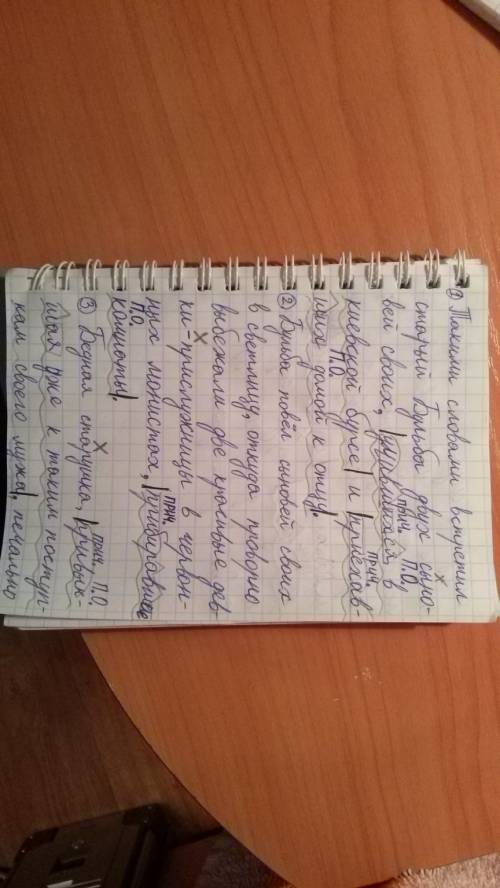 ① Такими словами встретил
х
старый Бульба двух сыно-
прич. П.О.
вей своих, |учившихся в
прич.
киевской бурсе| и |приехав-
П.О.
ших домой к отцу|.
② Бульба повёл сыновей своих
в светлицу, откуда проворно
выбежали две красивые дев-
х
ки-прислужницы в червон-
прич.
ных монистах, |прибиравшие
П.О.
комнаты|.
х прич. П.О.
③ Бедная старушка, |привык-
шая уже к таким поступ-
кам своего мужа|, печально